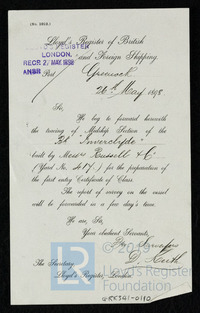 (No. 1012.)
Lloyd's Register of British
and Foreign Shipping.
REGISTER
LONDON.
RECR 2 MAY 1898
ANSR
Port Greenock
26th May 1898
Sir,
We beg to forward herewith
the tracing of Midship Section of the
Bk "Inverclyde"
built by Messrs Russell & Co
(Yard No. 417) for the preparation of
the first entry Certificate of Class.
The report of survey on the vessel
will be forwarded in a few day's time.
We are, Sir,
Your obedient Servants,
The Surveyors
The Secretary
Lloyd's Register, London
LR
Lloyd's Register
Foundation